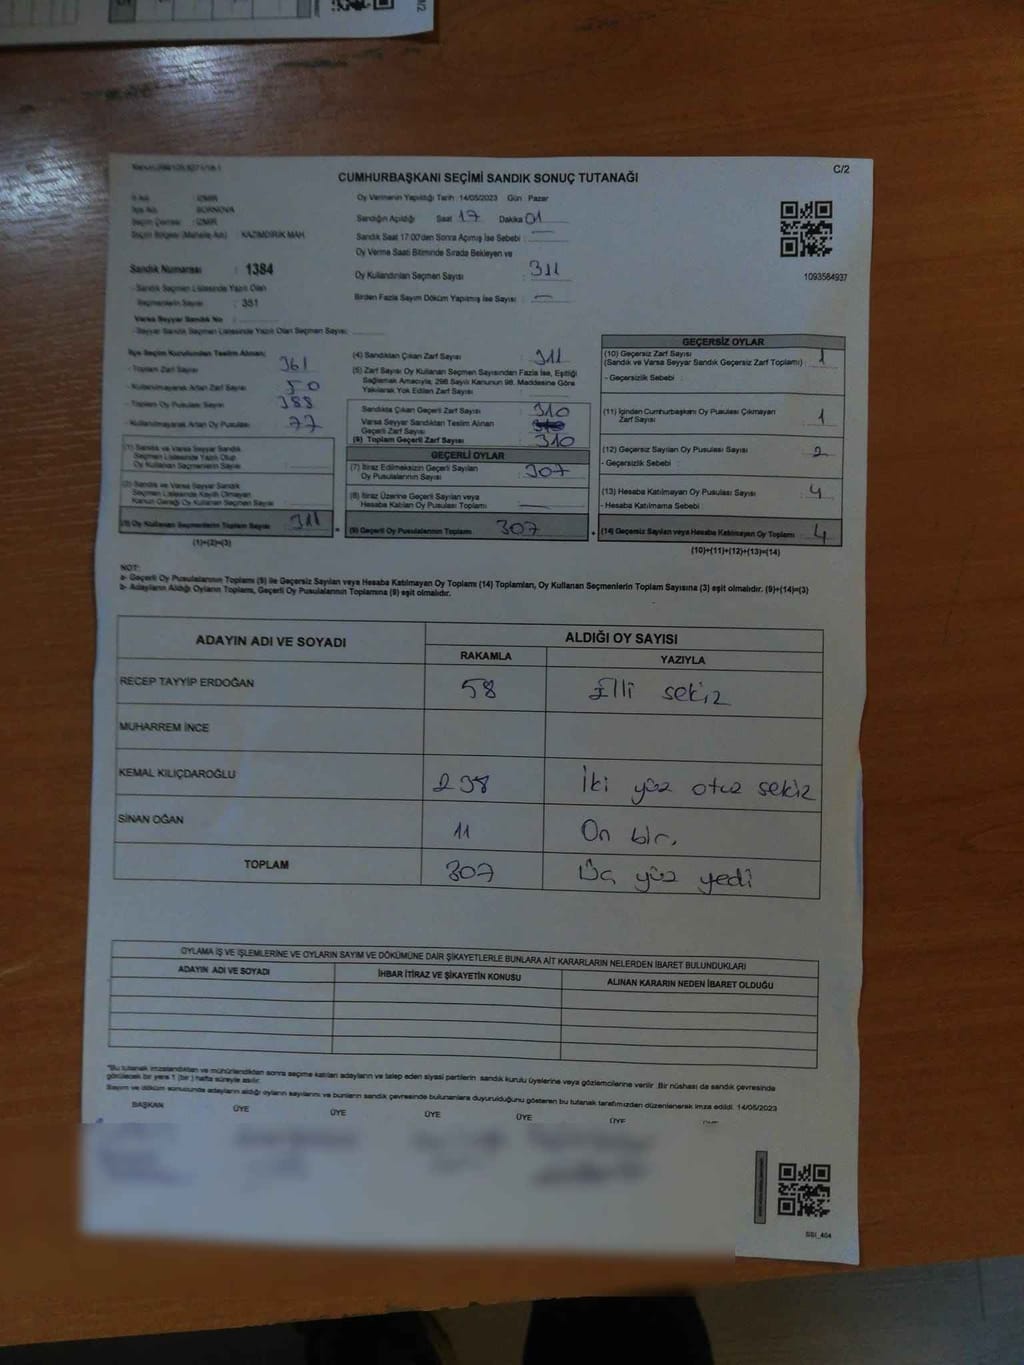 C/2
CUMHURBAŞKANI SEÇİMİ SANDIK SONUÇ TUTANAĞI
İli Adı : İZMİR
İlçe Adı : BORNOVA
Seçim Çevresi : İZMİR
Seçim Bölgesi (Mahalle Adı) : KAZIMDİRİK MAH.
Sandık Numarası : 1384
- Sandık Seçmen Listesinde Yazılı Olan
Seçmenlerin Sayısı : 351
Varsa Seyyar Sandık No :
- Seyyar Sandık Seçmen Listesinde Yazılı Olan Seçmen Sayısı:
Oy Vermenin Yapıldığı Tarih :14/05/2023 Gün : Pazar
Sandığın Açıldığı Saat 17 Dakika 01
Sandık Saat 17:00'den Sonra Açılmış İse Sebebi : —
Oy Verme Saati Bitiminde Sırada Bekleyen ve
Oy Kullandırılan Seçmen Sayısı : 311
Birden Fazla Sayım Döküm Yapılmış İse Sayısı : —
1093584937
İlçe Seçim Kurulundan Teslim Alınan:
- Toplam Zarf Sayısı : 361
- Kullanılmayarak Artan Zarf Sayısı : 50
- Toplam Oy Pusulası Sayısı : 388
- Kullanılmayarak Artan Oy Pusulası : 77
(1) Sandık ve Varsa Seyyar Sandık
Seçmen Listesinde Yazılı Olup
Oy Kullanan Seçmenlerin Sayısı :
(2) Sandık ve Varsa Seyyar Sandık
Seçmen Listesinde Kayıtlı Olmayan
Kanun Gereği Oy Kullanan Seçmen Sayısı :
(3) Oy Kullanan Seçmenlerin Toplam Sayısı : 311
(1)+(2)=(3)
(4) Sandıktan Çıkan Zarf Sayısı : 311
(5) Zarf Sayısı Oy Kullanan Seçmen Sayısından Fazla İse, Eşitliği
Sağlamak Amacıyla; 298 Sayılı Kanunun 98. Maddesine Göre
Yakılarak Yok Edilen Zarf Sayısı :
Sandıkta Çıkan Geçerli Zarf Sayısı : 310
Varsa Seyyar Sandıktan Teslim Alınan
Geçerli Zarf Sayısı :
(6) Toplam Geçerli Zarf Sayısı : 310
GEÇERLİ OYLAR
(7) İtiraz Edilmeksizin Geçerli Sayılan
Oy Pusulalarının Sayısı : 307
(8) İtiraz Üzerine Geçerli Sayılan veya
Hesaba Katılan Oy Pusulaları Toplamı : —
= (9) Geçerli Oy Pusulalarının Toplamı : 307
GEÇERSİZ OYLAR
(10) Geçersiz Zarf Sayısı
(Sandık ve Varsa Seyyar Sandık Geçersiz Zarf Toplamı) : 1
- Geçersizlik Sebebi :
(11) İçinden Cumhurbaşkanı Oy Pusulası Çıkmayan
Zarf Sayısı : 1
(12) Geçersiz Sayılan Oy Pusulası Sayısı : 2
- Geçersizlik Sebebi :
(13) Hesaba Katılmayan Oy Pusulası Sayısı : 4
- Hesaba Katılmama Sebebi :
+ (14) Geçersiz Sayılan veya Hesaba Katılmayan Oy Toplamı : 4
(10)+(11)+(12)+(13)=(14)
NOT:
a- Geçerli Oy Pusulalarının Toplamı (9) ile Geçersiz Sayılan veya Hesaba Katılmayan Oy Toplamı (14) Toplamları, Oy Kullanan Seçmenlerin Toplam Sayısına (3) eşit olmalıdır. (9)+(14)=(3)
b- Adayların Aldığı Oyların Toplamı, Geçerli Oy Pusulalarının Toplamına (9) eşit olmalıdır.
ADAYIN ADI VE SOYADI ALDIĞI OY SAYISI
RAKAMLA YAZIYLA
RECEP TAYYİP ERDOĞAN 58 Elli sekiz
MUHARREM İNCE
KEMAL KILIÇDAROĞLU 238 İki yüz otuz sekiz
SİNAN OĞAN 11 On bir.
TOPLAM 307 Üç yüz yedi
OYLAMA İŞ VE İŞLEMLERİNE VE OYLARIN SAYIM VE DÖKÜMÜNE DAİR ŞİKAYETLERLE BUNLARA AİT KARARLARIN NELERDEN İBARET BULUNDUKLARI
ADAYIN ADI VE SOYADI İHBAR İTİRAZ VE ŞİKAYETİN KONUSU ALINAN KARARIN NEDEN İBARET OLDUĞU
*Bu tutanak imzalandıktan ve mühürlendikten sonra seçime katılan adayların ve talep eden siyasi partilerin sandık kurulu üyelerine veya gözlemcilerine verilir. Bir nüshası da sandık çevresinde
görülecek bir yere 1 (bir) hafta süreyle asılır.
Sayım ve döküm sonucunda adayların aldığı oyların sayılarını ve bunların sandık çevresinde bulunanlara duyurulduğunu gösteren bu tutanak tarafımızdan düzenlenerek imza edildi. 14/05/2023
BAŞKAN ÜYE ÜYE ÜYE ÜYE ÜYE ÜYE
SSI_404